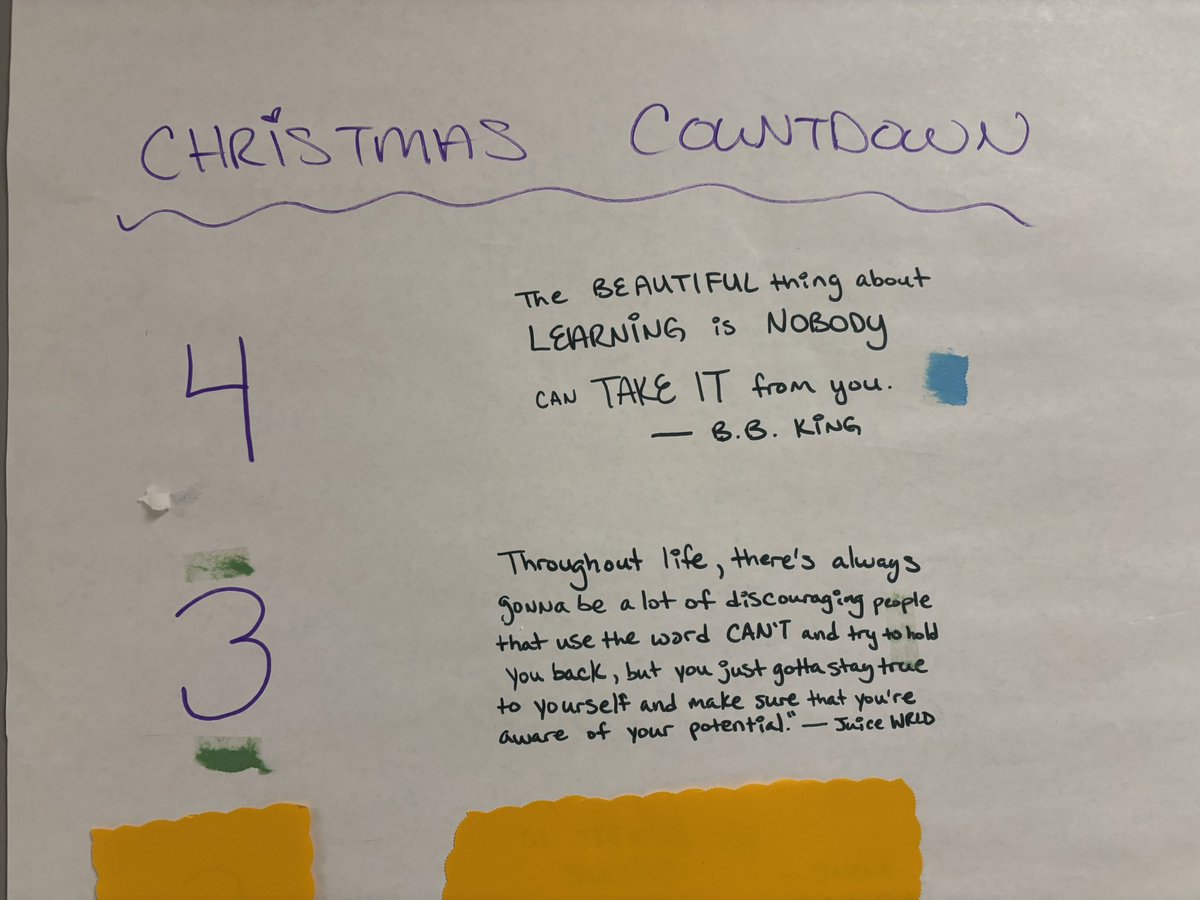 CHRISTMAS COUNTDOWN
4
The BEAUTIFUL thing about
LEARNING is NOBODY
CAN TAKE IT from you.
— B.B. KING
3
Throughout life, there's always
gonna be a lot of discouraging people
that use the word CAN'T and try to hold
you back, but you just gotta stay true
to yourself and make sure that you're
aware of your potential." — Juice WRLD